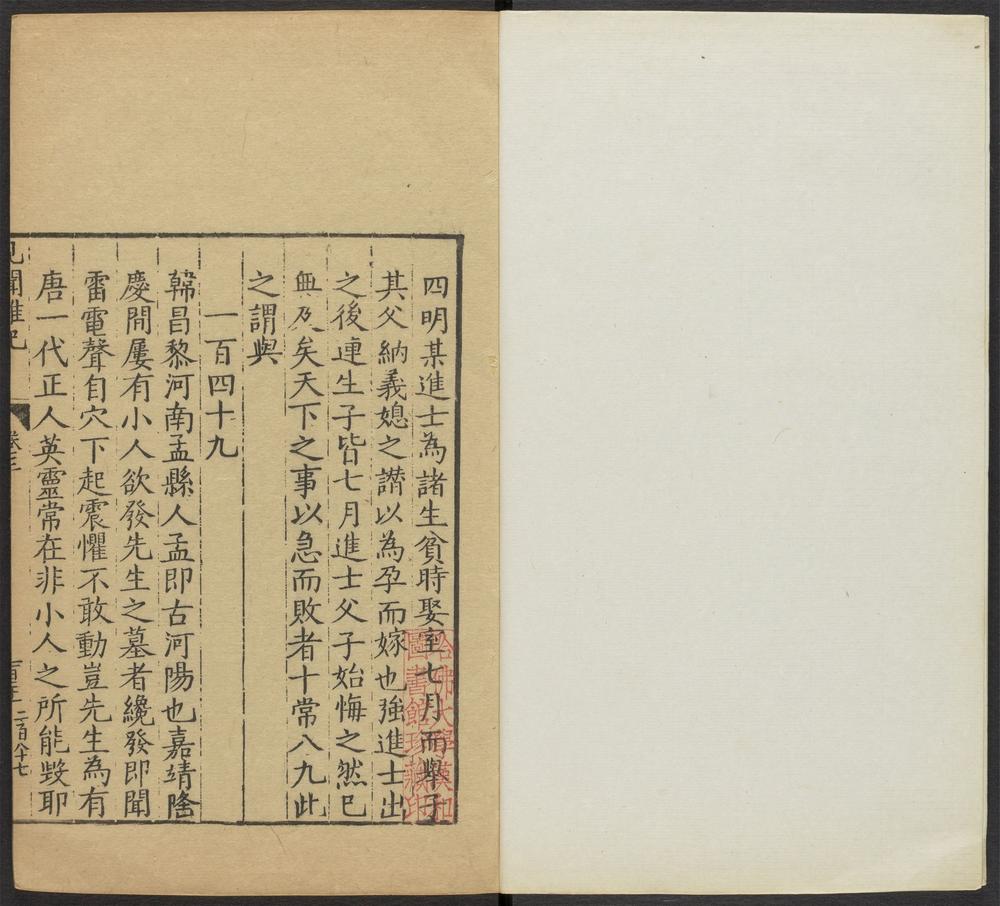 四明某進士為諸生貧時娶室七月而舉子
其父納義媳之譛以為孕而嫁也強進士出
之後連生子皆七月進士父子始悔之然已
無及矣天下之事以急而敗者十常八九此
之謂與
一百四十九
韓昌黎河南孟縣人孟即古河陽也嘉靖隆
慶間屢有小人欲發先生之墓者纔發即聞
雷電聲自穴下起震懼不敢動豈先生為有
唐一代正人英靈常在非小人之所能毀耶
見聞雜記
卷三
二百八十七
哈佛大學漢和
圖書館珍藏印